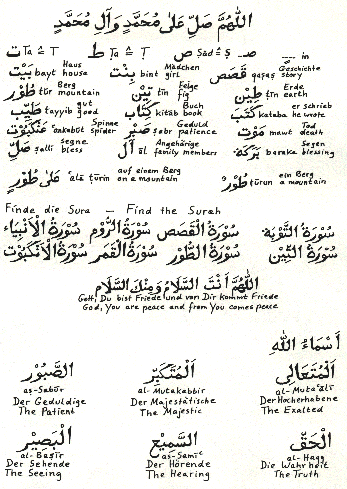 اللَّهُمَّ صَلِّ عَلَىٰ مُحَمَّدٍ وَآلِ مُحَمَّدٍ
ت Ta = T ط Ta = T ص Ṣād = Ṣ in
Haus Mädchen Geschichte
بَيْت bayt house بِنْت bint girl قَصَص qaṣaṣ story
Berg Feige Erde
طُور ṭūr mountain تِين tīn fig طِين ṭīn earth
gut Buch er Schrieb
طَيِّب ṭayyib good كِتَاب kitāb book كَتَبَ kataba he wrote
Spinne Geduld Tod
عَنْكَبُوت ʿankabūt spider صَبْر ṣabr patience مَوْت mawt death
segne Angehörige Segen
صَلِّ ṣalli bless آل āl family members بَرَكَة baraka blessing
auf einem Berg ein Berg
عَلَىٰ طُورٍ ʿalā ṭūrin on a mountain طُورٌ ṭūrun a mountain
Finde die Sura — Find the Surah
سُورَةُ التَّوْبَة سُورَةُ الْقَصَص سُورَةُ الرُّوم سُورَةُ الْأَنْبِيَاء
سُورَةُ التِّين سُورَةُ الطُّور سُورَةُ الْقَمَر سُورَةُ الْعَنْكَبُوت
اللَّهُمَّ أَنْتَ السَّلَامُ وَمِنْكَ السَّلَام
Gott, Du bist Friede und von Dir kommt Friede
God, You are peace and from You comes peace
أَسْمَاءُ اللَّهِ
الصَّبُور الْمُتَكَبِّر الْمُتَعَالِي
aṣ-Ṣabūr al-Mutakabbir al-Mutaʿālī
Der Geduldige Der Majestätische Der Hocherhabene
The Patient The Majestic The Exalted
الْبَصِير السَّمِيع الْحَقّ
al-Baṣīr as-Samīʿ al-Ḥaqq
Der Sehende Der Hörende Die Wahrheit
The Seeing The Hearing The Truth